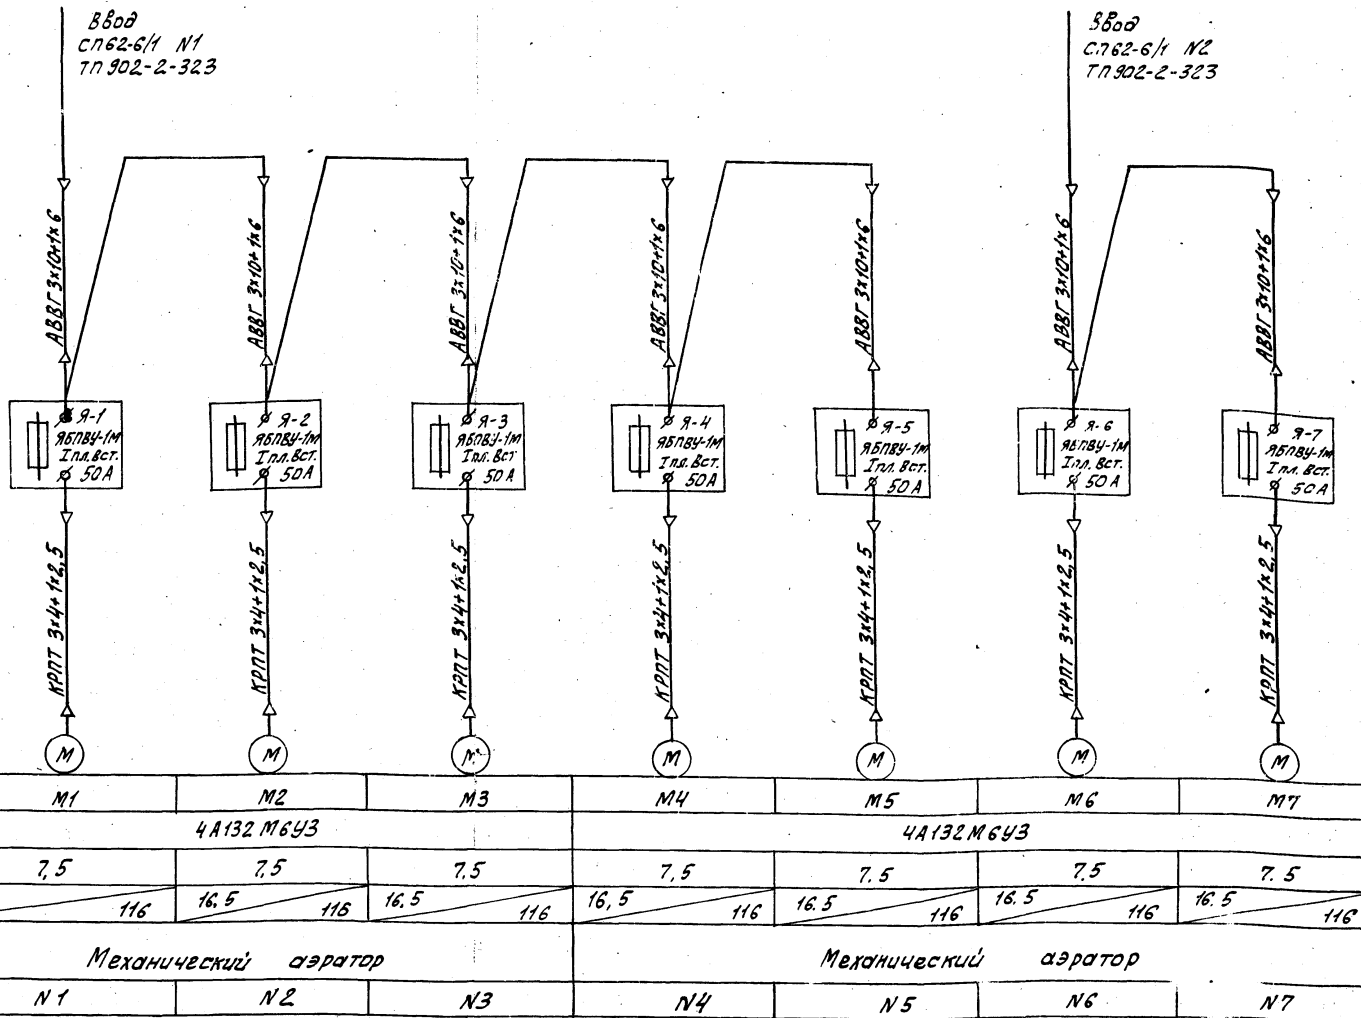 Ввод
СП62-6/1 N1
ТП 902-2-323
Ввод
СП62-6/1 N2
ТП 902-2-323
АВВГ 3х10+1х6
АВВГ 3х10+1х6
АВВГ 3х10+1х6
АВВГ 3х10+1х6
АВВГ 3х10+1х6
АВВГ 3х10+1х6
АВВГ 3х10+1х6
Я-1
ЯБПВУ-1М
Iпл. Вст.
50А
Я-2
ЯБПВУ-1М
Iпл. Вст.
50А
Я-3
ЯБПВУ-1М
Iпл. Вст
50А
Я-4
ЯБПВУ-1М
Iпл. Вст.
50А
Я-5
ЯБПВУ-1М
Iпл. Вст.
50А
Я-6
ЯБПВУ-1М
Iпл. Вст.
50А
Я-7
ЯБПВУ-1М
Iпл. Вст.
50А
КРПТ 3х4+1х2,5
КРПТ 3х4+1х2,5
КРПТ 3х4+1х2,5
КРПТ 3х4+1х2,5
КРПТ 3х4+1х2,5
КРПТ 3х4+1х2,5
КРПТ 3х4+1х2,5
М М М М М М М
М1 М2 М3 М4 М5 М6 М7
4А132М6У3 4А132М6У3
7,5 7,5 7.5 7,5 7.5 7.5 7.5
116 16,5 116 16.5 116 16,5 116 16.5 116 16.5 116 16.5 116
Механический аэратор Механический аэратор
N1 N2 N3 N4 N5 N6 N7